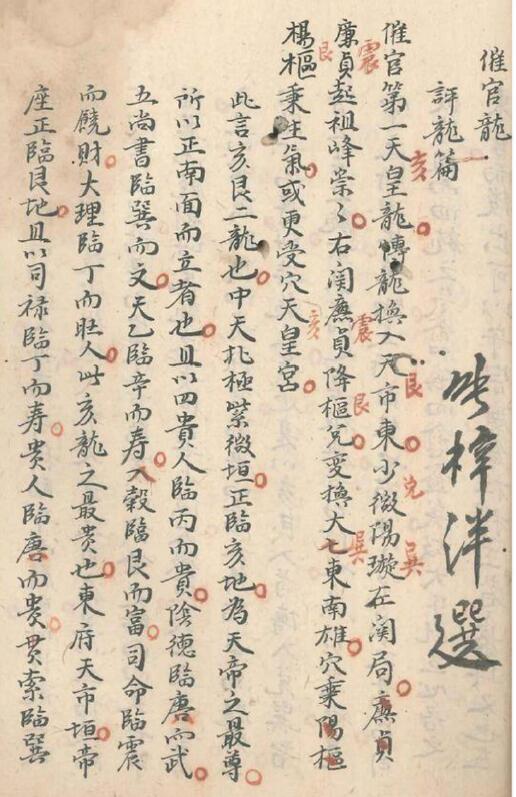 催官龍
評龍篇
梓泮選
亥 艮 兌 巽
催官第一天皇龍博龍換入天市東少微陽璇在関局廉貞
震 震 艮 巽
廉貞起祖峰崇々右関廉貞降樞兌変換大七東南雄穴乘陽樞
艮 亥
楊樞乘生氣或更受穴天皇宮
此言亥艮二龍也中天北極紫微垣正臨亥地為天帝之最尊
所以正南面而立者也且以四貴人臨丙而貴陰德臨唐而武
五尚書臨巽而文天乙臨辛而寿八穀臨艮而富司命臨震
而饒財大理臨丁而旺人此亥龍之最贵也東府天市垣帝
座正臨艮地且以司禄臨丁而寿贵人臨唐而贵贯索臨巽